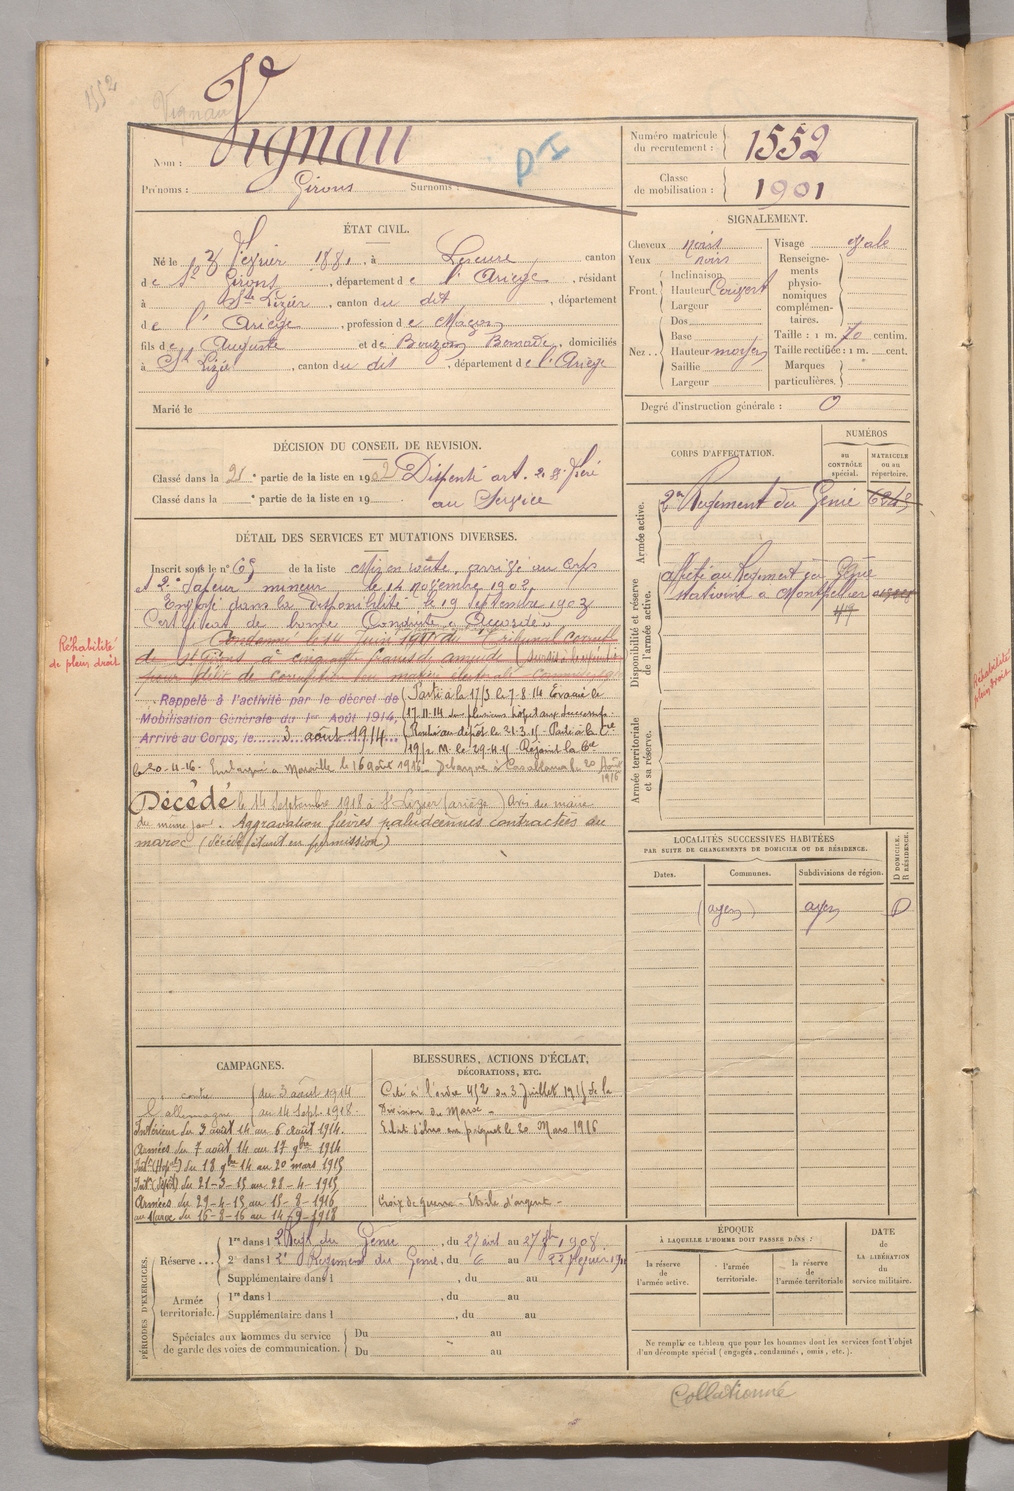 1552
Vignau
Nom : Vignau
P I
Prénoms : Girons Surnoms :
Numéro matricule du recrutement : 1552
Classe de mobilisation : 1901
ÉTAT CIVIL.
Né le 3 Février 1881, à Lescure canton
de St Girons, département de l'Ariège, résidant
à St Lizier, canton du dit, département
de l'Ariège, profession de Maçon
fils de Auguste et de Bouzon Bernade, domiciliés
à St Lizier, canton du dit, département de l'Ariège
Marié le
SIGNALEMENT.
Cheveux noirs
Yeux noirs
Front. Inclinaison
Hauteur Couvert
Largeur
Nez .. Dos
Base
Hauteur moyen
Saillie
Largeur
Visage ovale
Renseignements physionomiques complémentaires.
Taille : 1 m. 70 centim.
Taille rectifiée : 1 m. cent.
Marques particulières.
Degré d'instruction générale : 0
DÉCISION DU CONSEIL DE REVISION.
Classé dans la 2e partie de la liste en 1902 Dispensé art. 21 Frère
Classé dans la e partie de la liste en 19 au Service
DÉTAIL DES SERVICES ET MUTATIONS DIVERSES.
Inscrit sous le n° 65 de la liste Mis en route, arrivé au Corps
et 2e Sapeur mineur le 14 novembre 1902.
Envoyé dans la disponibilité le 19 septembre 1903
Certificat de bonne Conduite « Accordé »
Condamné le 14 Juin 19 du Tribunal correll
de St Girons à cinquante francs d'amende (sursis à l'exécution)
pour délit de corruption en matière électorale
Réhabilité
de plein droit
Rappelé à l'activité par le décret de
Mobilisation Générale du 1er Août 1914,
Arrivé au Corps, le 3 août 1914
Parti à la 17/3 le 7-8-14 Evacué le
17-11-14 sur plusieurs hôpitaux successifs.
Rentré au dépôt le 21-3-15 Parti à la Cie
19/2 M. le 29-4-15 Rejoint la Cie
le 20-4-16. Embarqué à Marseille le 16 août 1916 Débarqué à Casablanca le 20 Août
1916
Décédé le 14 Septembre 1918 à St Lizier (ariège) Avis du maire
du même jour. Aggravation fièvres paludéennes contractées au
maroc (décédé étant en permission)
CORPS D'AFFECTATION.
NUMÉROS
au CONTRÔLE spécial.
MATRICULE ou au répertoire.
Armée active.
2e Régiment du Génie
Disponibilité et réserve de l'armée active.
affecté au Régiment du Génie
stationné à Montpellier
Armée territoriale et sa réserve.
LOCALITÉS SUCCESSIVES HABITÉES
PAR SUITE DE CHANGEMENTS DE DOMICILE OU DE RÉSIDENCE.
Dates. Communes. Subdivisions de région.
D DOMICILE. R RÉSIDENCE.
(agen) agen D
CAMPAGNES.
contre du 3 août 1914
L'allemagne au 14 Sept. 1918.
Intérieur du 3 août 14 au 6 août 1914.
Armées du 7 août 14 au 17 9bre 1914
Intr (Hopal) du 18 9bre 14 au 20 mars 1915
Intr (dépôt) du 21-3-15 au 28-4-1915
Armées du 29-4-15 au 15-8-1916
au Maroc du 16-8-16 au 14-9-1918
BLESSURES, ACTIONS D'ÉCLAT,
DÉCORATIONS, ETC.
Cité à l'ordre 452 du 3 juillet 1915 de la
Division du Maroc
Eclat d'obus au poignet le 20 Mars 1916
Croix de guerre - Etoile d'argent -
PÉRIODES D'EXERCICES.
Réserve ... 1re dans l 2e Régt du Génie, du 27 août au 27 7bre 1908.
2e dans l 2e Régiment du Génie, du 6 au 22 février 1911
Supplémentaire dans l , du au
Armée territoriale. 1re dans l , du au
Supplémentaire dans l , du au
Spéciales aux hommes du service de garde des voies de communication.
Du au
Du au
ÉPOQUE
À LAQUELLE L'HOMME DOIT PASSER DANS :
la réserve de l'armée active.
l'armée territoriale.
la réserve de l'armée territoriale
DATE de LA LIBÉRATION du service militaire.
Ne remplir ce tableau que pour les hommes dont les services font l'objet
d'un décompte spécial (engagés, condamnés, omis, etc.).
Collationné
Réhabilité
plein droit